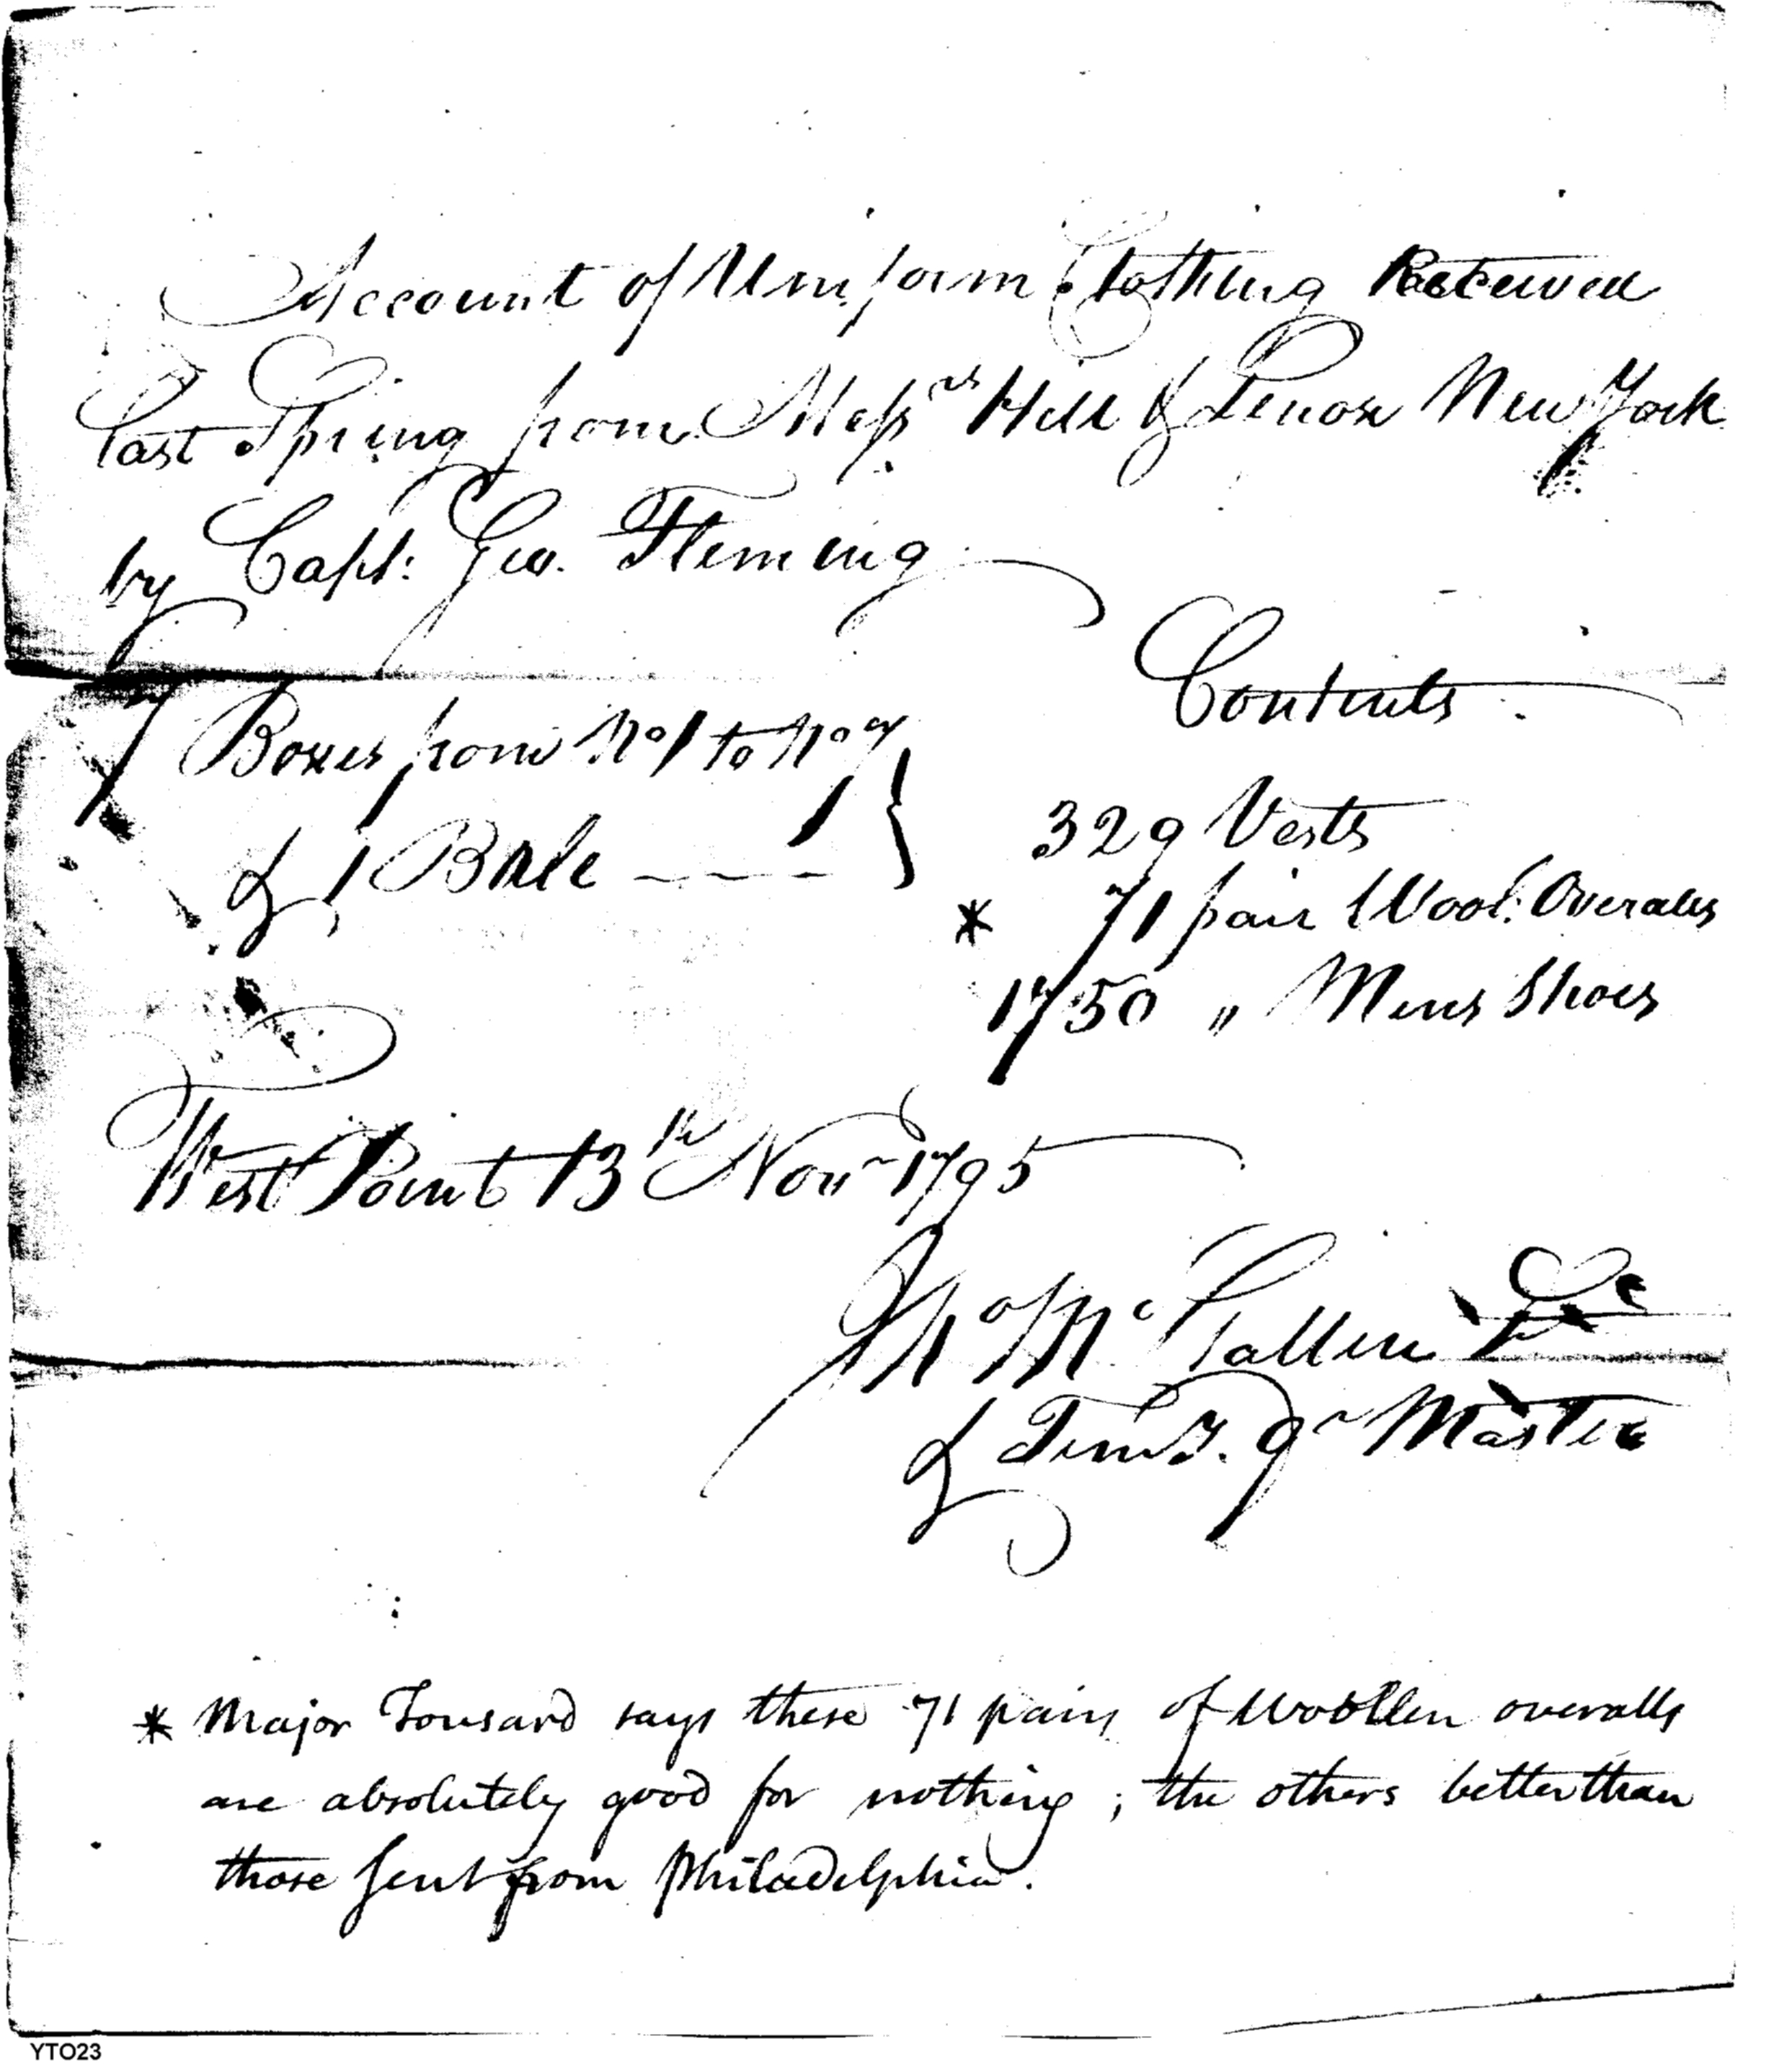 Account of Uniform Clothing Received
last Spring from Messrs Hill & Lenox New York
by Capt: Geo. Fleming
Contents
7 Boxes from No 1 to No 7
& 1 Bale
329 Vests
* 71 pair Wool: Overalls
1750 " Mens Shoes
West Point 13th Novr 1795
Mc
& Qr Master
* Major Tousard says these 71 pairs of Woollen overalls
are absolutely good for nothing; the others better than
those sent from Philadelphia.
YTO23